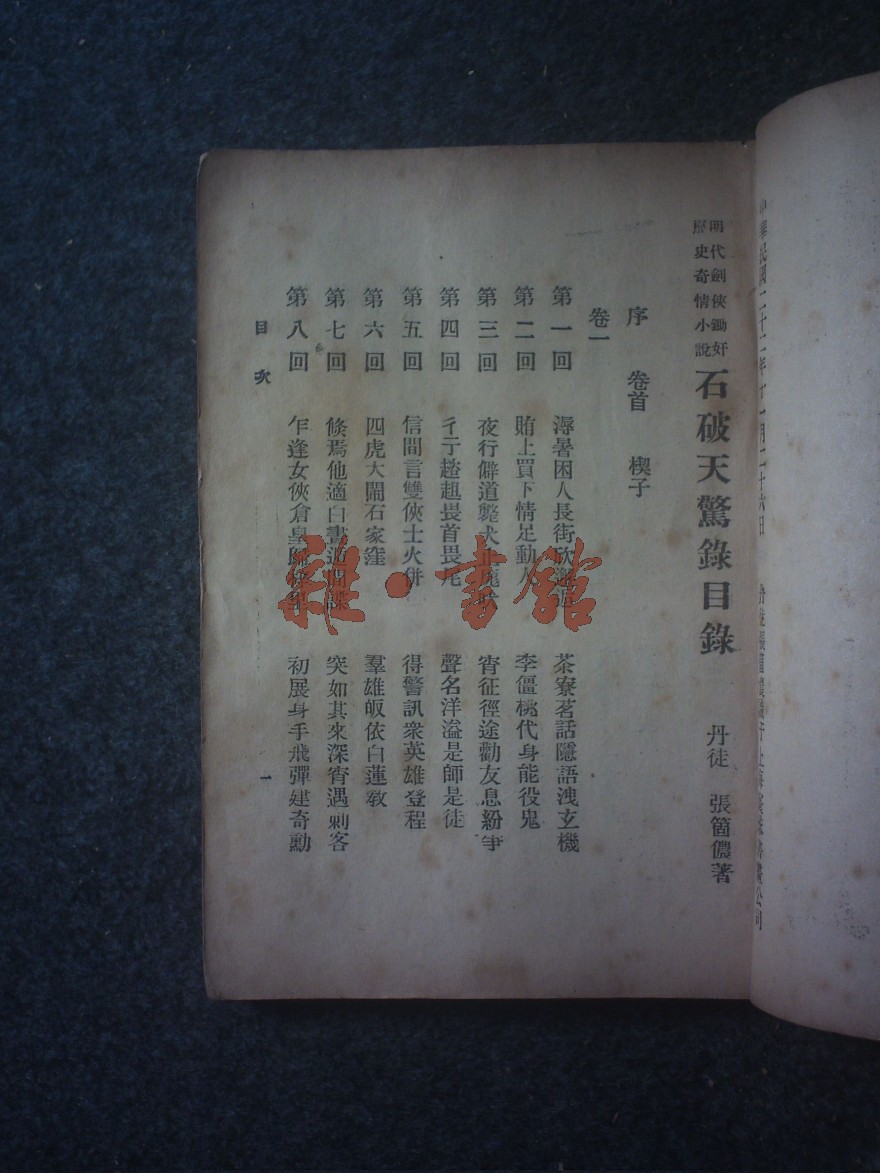 中華民國二十二年十一月二十六日
明代劍俠鋤奸
歷史奇情小說
石破天驚錄目錄 丹徒 張箇儂著
序 卷首 楔子
卷一
第一回 溽暑困人長街欣邂逅 茶寮茗話隱語洩玄機
第二回 賄上買下情足動人 李僵桃代身能役鬼
第三回 夜行僻道嫛犬正尨吠 宵征徑途勸友息紛爭
第四回 彳亍趦趄畏首畏尾 聲名洋溢是師是徒
第五回 信間言雙俠士火併 得警訊衆英雄登程
第六回 四虎大鬧石家窪 羣雄皈依白蓮教
第七回 倏焉他適白晝逅間諜 突如其來深宵遇刺客
第八回 乍逢女俠倉皇歸 初展身手飛彈建奇勳
目次
一
雜·書館